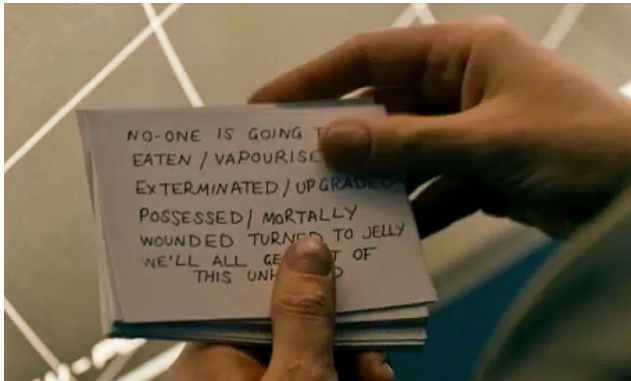 NO-ONE IS GOING
EATEN / VAPOURISE
EXTERMINATED / UPGRADED
POSSESSED / MORTALLY
WOUNDED TURNED TO JELLY
WE'LL ALL OF
THIS